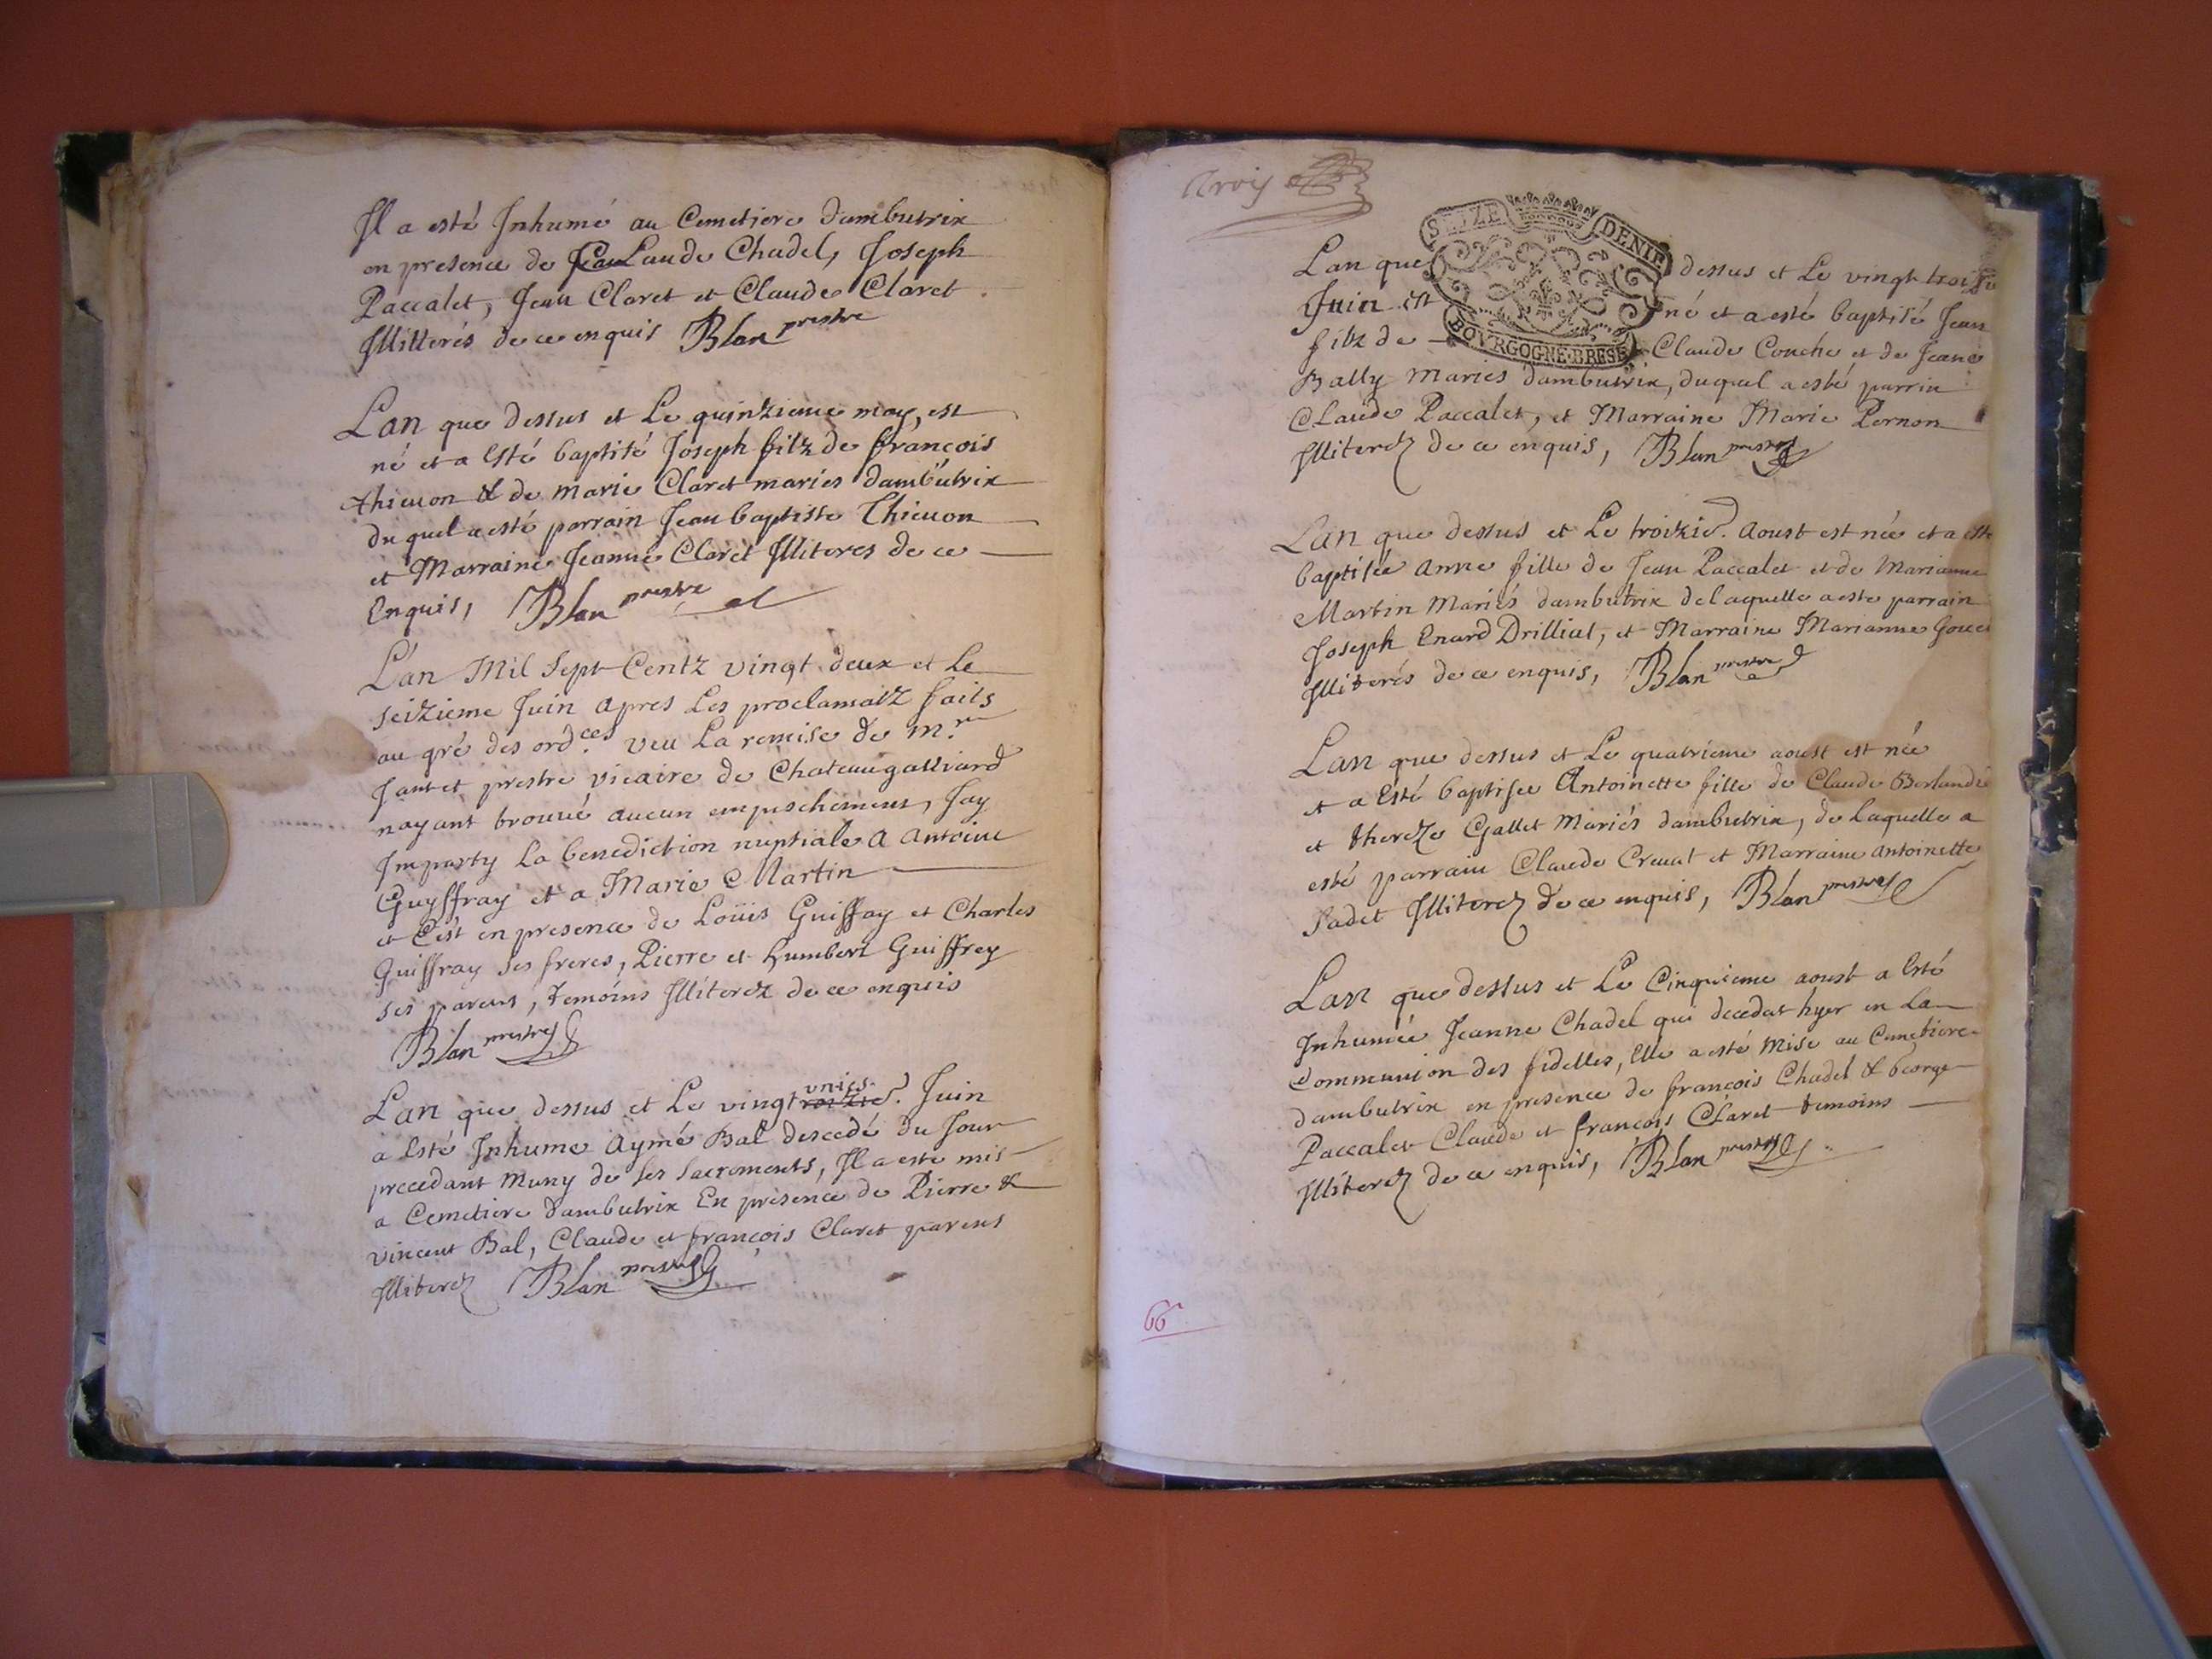 Il a esté Inhumé au Cemetiere dambutrix
en presence de Claude Chadel, Joseph
Paccalet, Jean Claret et Claude Claret
Illitterés de ce enquis Blan prestre
Lan que dessus et Le quinzieme may, est
né et a Esté baptisé Joseph filz de françois
thieuon & de marie Claret mariés dambutrix
du quel a esté parrain Jean baptiste Thieuon
et Marraine Jeanne Claret Illiteres de ce
Enquis, Blan prestre
L'an Mil Sept Centz vingt deux et Le
seizieme Juin apres Les proclamatz faits
au gré des ord.ces veu La remise de m.r
Jantet prestre vicaire de Chateaugalliard
nayant trouué aucun empeschement, Jay
Imparty La benediction nuptiale a Antoine
Guyffray et a Marie Martin
et C'est en presence de Loüis Guiffray et Charles
Guiffray ses freres, Pierre et humbert Guiffrey
ses parens, temoins Illiterez de ce enquis
Blan prestre
Lan que dessus et Le vingt unies. Juin
a Esté Inhume Aymé Bal descedé du Jour
precedant muny de ses sacrements, Il a este mis
a Cemetiere dambutrix En presence de Pierre &
vincent Bal, Claude et françois Claret parens
Illiterez Blan prestre
Trois
SEIZE DENIE
Lan que dessus et Le vingt
Juin est né et a esté baptisé Jean
filz de Claude Couche et de Jeane
BOVRGOGNE·BRESE
Bally mariés dambutrix, duquel a esté parrin
Claude Paccalet, et Marraine Marie Pernon
Illiterez de ce enquis, Blan prestre
Lan que dessus et Le troizie. Aoust est née et a esté
baptisée anne fille de Jean Paccalet et de Marianne
Martin Mariés dambutrix de laquelle a este parrain
Joseph Enard Drilliat, et Marraine Marianne
Illiterés de ce enquis, Blan prestre
Lan que dessus et Le quatrieme aoust est née
et a Esté baptisee Antoinette fille de Claude
et thereze Gallet Mariés dambutrix, de Laquelle a
esté parrain Claude Creuat et Marraine Antoinette
Sadet Illiterez de ce enquis, Blan prestre
Lan que dessus et Le Cinquieme aoust a Esté
Inhumée Jeanne Chadel qui deceda hyer en La
Communion des fidelles, Elle a esté Mise au Cemetiere
dambutrix en presence de françois Chadel & George
Paccalet Claude et françois Claret temoins
Illiterez de ce enquis, Blan prestre
66